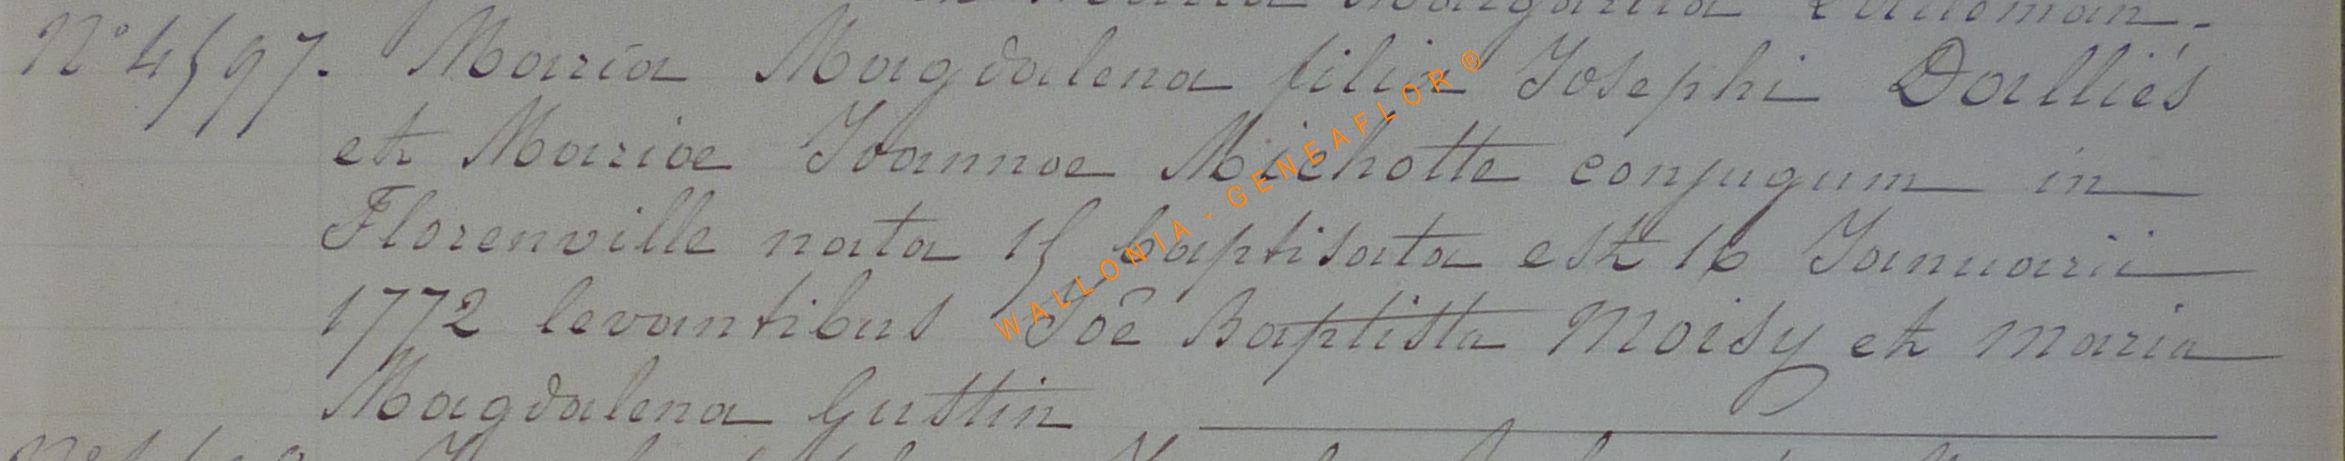 Margarita
N° 4597. Maria Magdalena filia Josephi Dalliés
et Mariae Joannae Michotte conjugum in
Florenville nata 15 baptisata est 16 Januarii
1772 levantibus Joê Baptista Moisy et Maria
Magdalena Gustin
WALLONIA - GENEAFLOR ©